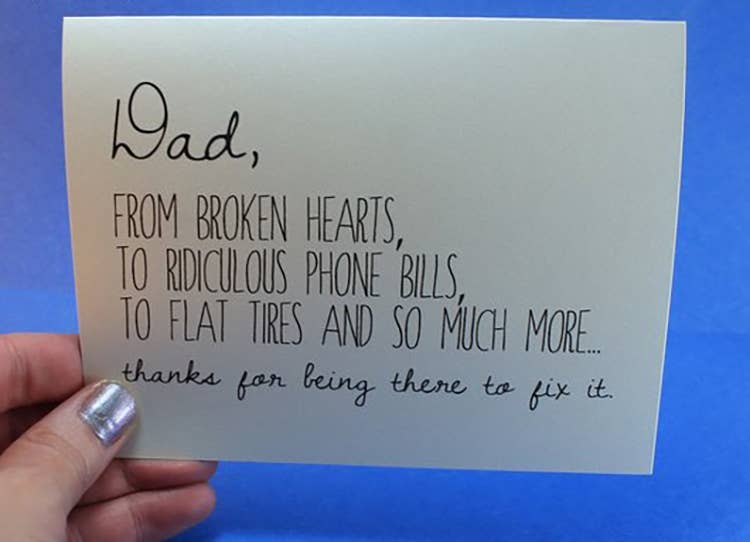 Dad,
FROM BROKEN HEARTS,
TO RIDICULOUS PHONE BILLS,
TO FLAT TIRES AND SO MUCH MORE...
thanks for being there to fix it.